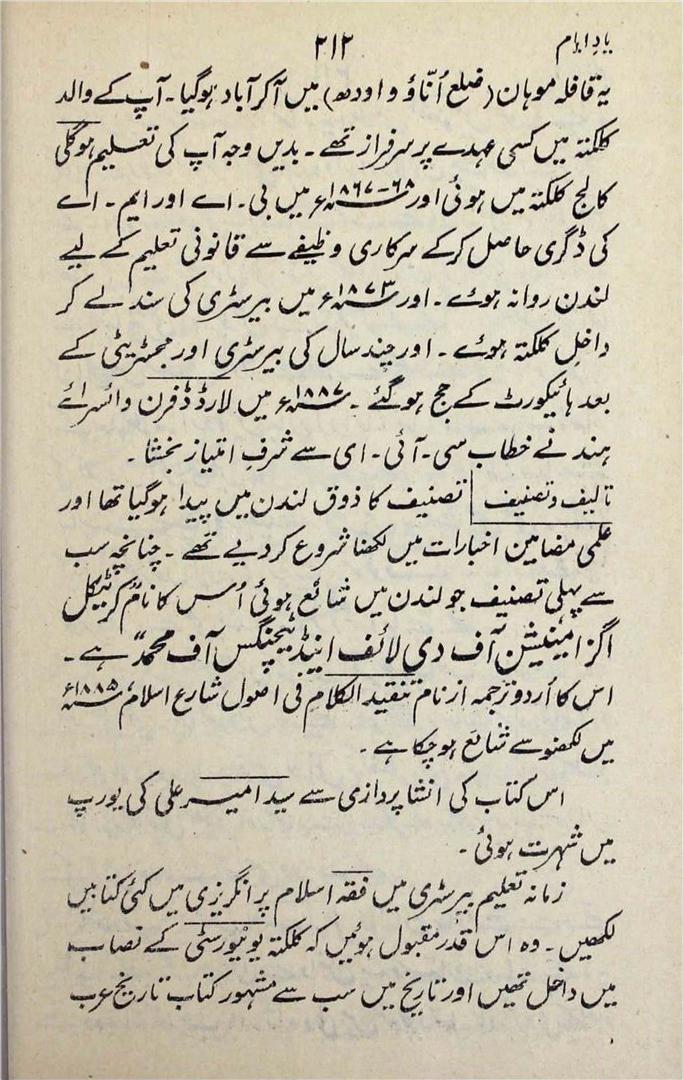 یادِ ایام
۲۱۲
یہ قافلہ موہان (ضلع اُنّاؤ و اودھ) میں آکر آباد ہوگیا۔ آپ کے والد
کلکتہ میں کسی عہدے پر سرفراز تھے۔ بدیں وجہ آپ کی تعلیم ہوگلی
کالج کلکتہ میں ہوئی اور ۶۸-۱۸۶۷ء میں بی۔ اے اور ایم۔ اے
کی ڈگری حاصل کرکے سرکاری وظیفے سے قانونی تعلیم کے لیے
لندن روانہ ہوے۔ اور ۱۸۷۳ء میں بیرسٹری کی سند لے کر
داخلِ کلکتہ ہوئے۔ اور چند سال کی بیرسٹری اور مجسٹریٹی کے
بعد ہائیکورٹ کے جج ہوگئے۔ ۱۸۸۷ء میں لارڈ ڈفرن وائسرائے
ہند نے خطاب سی۔ آئی۔ ای سے شرفِ امتیاز بخشا۔
تالیف و تصنیف تصنیف کا ذوق لندن میں پیدا ہوگیا تھا اور
علمی مضامین اخبارات میں لکھنا شروع کردیے تھے۔ چنانچہ سب
سے پہلی تصنیف جو لندن میں شائع ہوئی اُس کا نام "کرٹیکل
اگزامنیشن آف دی لائف اینڈ ٹیچنگس آف محمدؐ" ہے۔
اس کا اُردو ترجمہ از نام تنقید الکلام فی اصول شارع اسلام، ۱۸۸۵ء
میں لکھنو سے شائع ہوچکا ہے۔
اس کتاب کی انشا پردازی سے سید امیر علی کی یورپ
میں شہرت ہوئی۔
زمانہ تعلیم بیرسٹری میں فقہ اسلام پر انگریزی میں کئی کتابیں
لکھیں۔ وہ اس قدر مقبول ہوئیں کہ کلکتہ یونیورسٹی کے نصاب
میں داخل تھیں اور تاریخ میں سب سے مشہور کتاب تاریخ عرب